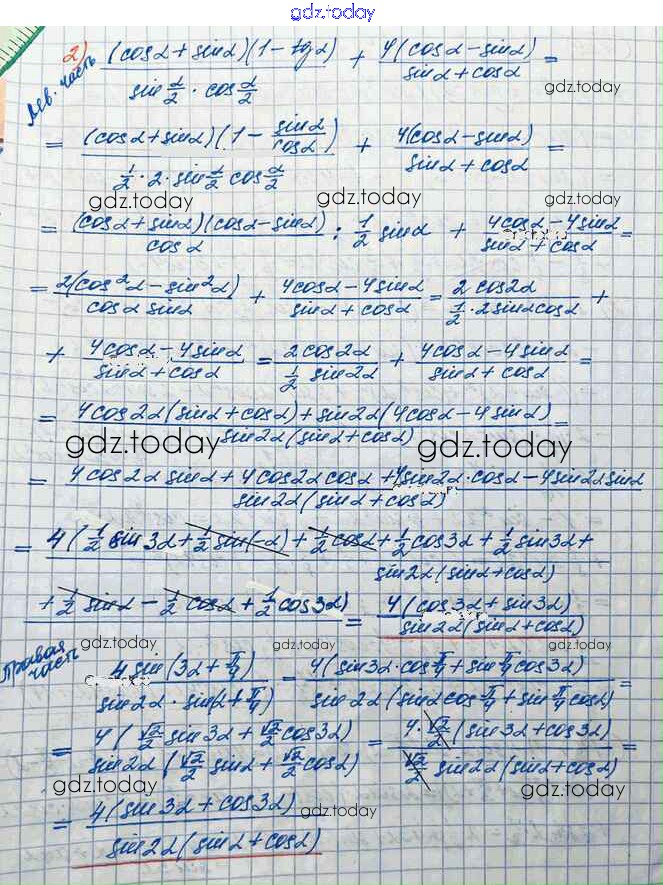 gdz.today
2) лев. часть ((cosα + sinα)(1 - tgα))/(sin α/2 · cos α/2) + (4(cosα - sinα))/(sinα + cosα) =
gdz.today
= ((cosα + sinα)(1 - sinα/cosα))/(1/2 · 2 · sin α/2 cos α/2) + (4(cosα - sinα))/(sinα + cosα) =
gdz.today gdz.today gdz.today
= ((cosα + sinα)(cosα - sinα))/(cosα) : 1/2 sinα + (4cosα - 4sinα)/(sinα + cosα) =
= (2(cos²α - sin²α))/(cosα sinα) + (4cosα - 4sinα)/(sinα + cosα) = (2cos2α)/(1/2 · 2sinα cosα) +
+ (4cosα - 4sinα)/(sinα + cosα) = (2cos2α)/(1/2 sin2α) + (4cosα - 4sinα)/(sinα + cosα) =
= (4cos2α(sinα + cosα) + sin2α(4cosα - 4sinα))/(sin2α(sinα + cosα)) =
gdz.today gdz.today
= (4cos2α sinα + 4cos2α cosα + 4sin2α · cosα - 4sin2α sinα)/(sin2α(sinα + cosα))
= 4(1/2 sin3α + 1/2 sin(-α) + 1/2 cosα + 1/2 cos3α + 1/2 sin3α +
sin2α(sinα + cosα)
+ 1/2 sinα - 1/2 cosα + 1/2 cos3α) = (4(cos3α + sin3α))/(sin2α(sinα + cosα))
gdz.today gdz.today gdz.today
Правая часть (4sin(3α + π/4))/(sin2α · sin(α + π/4)) = (4(sin3α · cos π/4 + sin π/4 cos3α))/(sin2α(sinα cos π/4 + sin π/4 cosα)) =
= (4(√2/2 sin3α + √2/2 cos3α))/(sin2α(√2/2 sinα + √2/2 cosα)) = (4 · √2/2 (sin3α + cos3α))/(√2/2 sin2α(sinα + cosα)) =
gdz.today gdz.today gdz.today
= (4(sin3α + cos3α))/(sin2α(sinα + cosα))
gdz.today